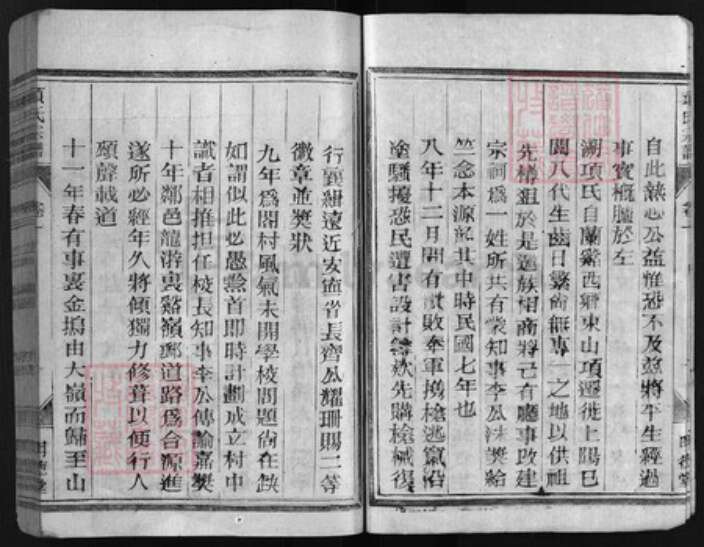 自此熱心公益惟恐不及茲將平生經過
事實概臚於左
湖項氏自蘭谿西鄉東山項遷徙上陽已
閱八代生齒日繁尚無專一之地以供祖
先樽俎於是邀族相商將己有廳事改建
宗祠爲一姓所共有蒙知事李公沫獎給
竺念本源記其中時民國七年也
八年十二月間有潰敗奉軍擕槍逃竄沿
塗騷擾恐民遭害設計籌欵先購槍械復
行襄紳遠近安寧省長齊公耀珊賜二等
徽章並獎狀
九年爲閤村風氣未開學校問題尙在缺
如謂似此必愚慈首卽時計劃成立村中
識者相推担任校長知事李公傳諭嘉獎
十年鄰邑龍游裏谿嶺鄣道路爲台源進
遂所必經年久將傾獨力修葺以便行人
頌聲載道
十一年春有事裏金塢由大嶺而歸至山
項氏宗譜
卷一
明德堂